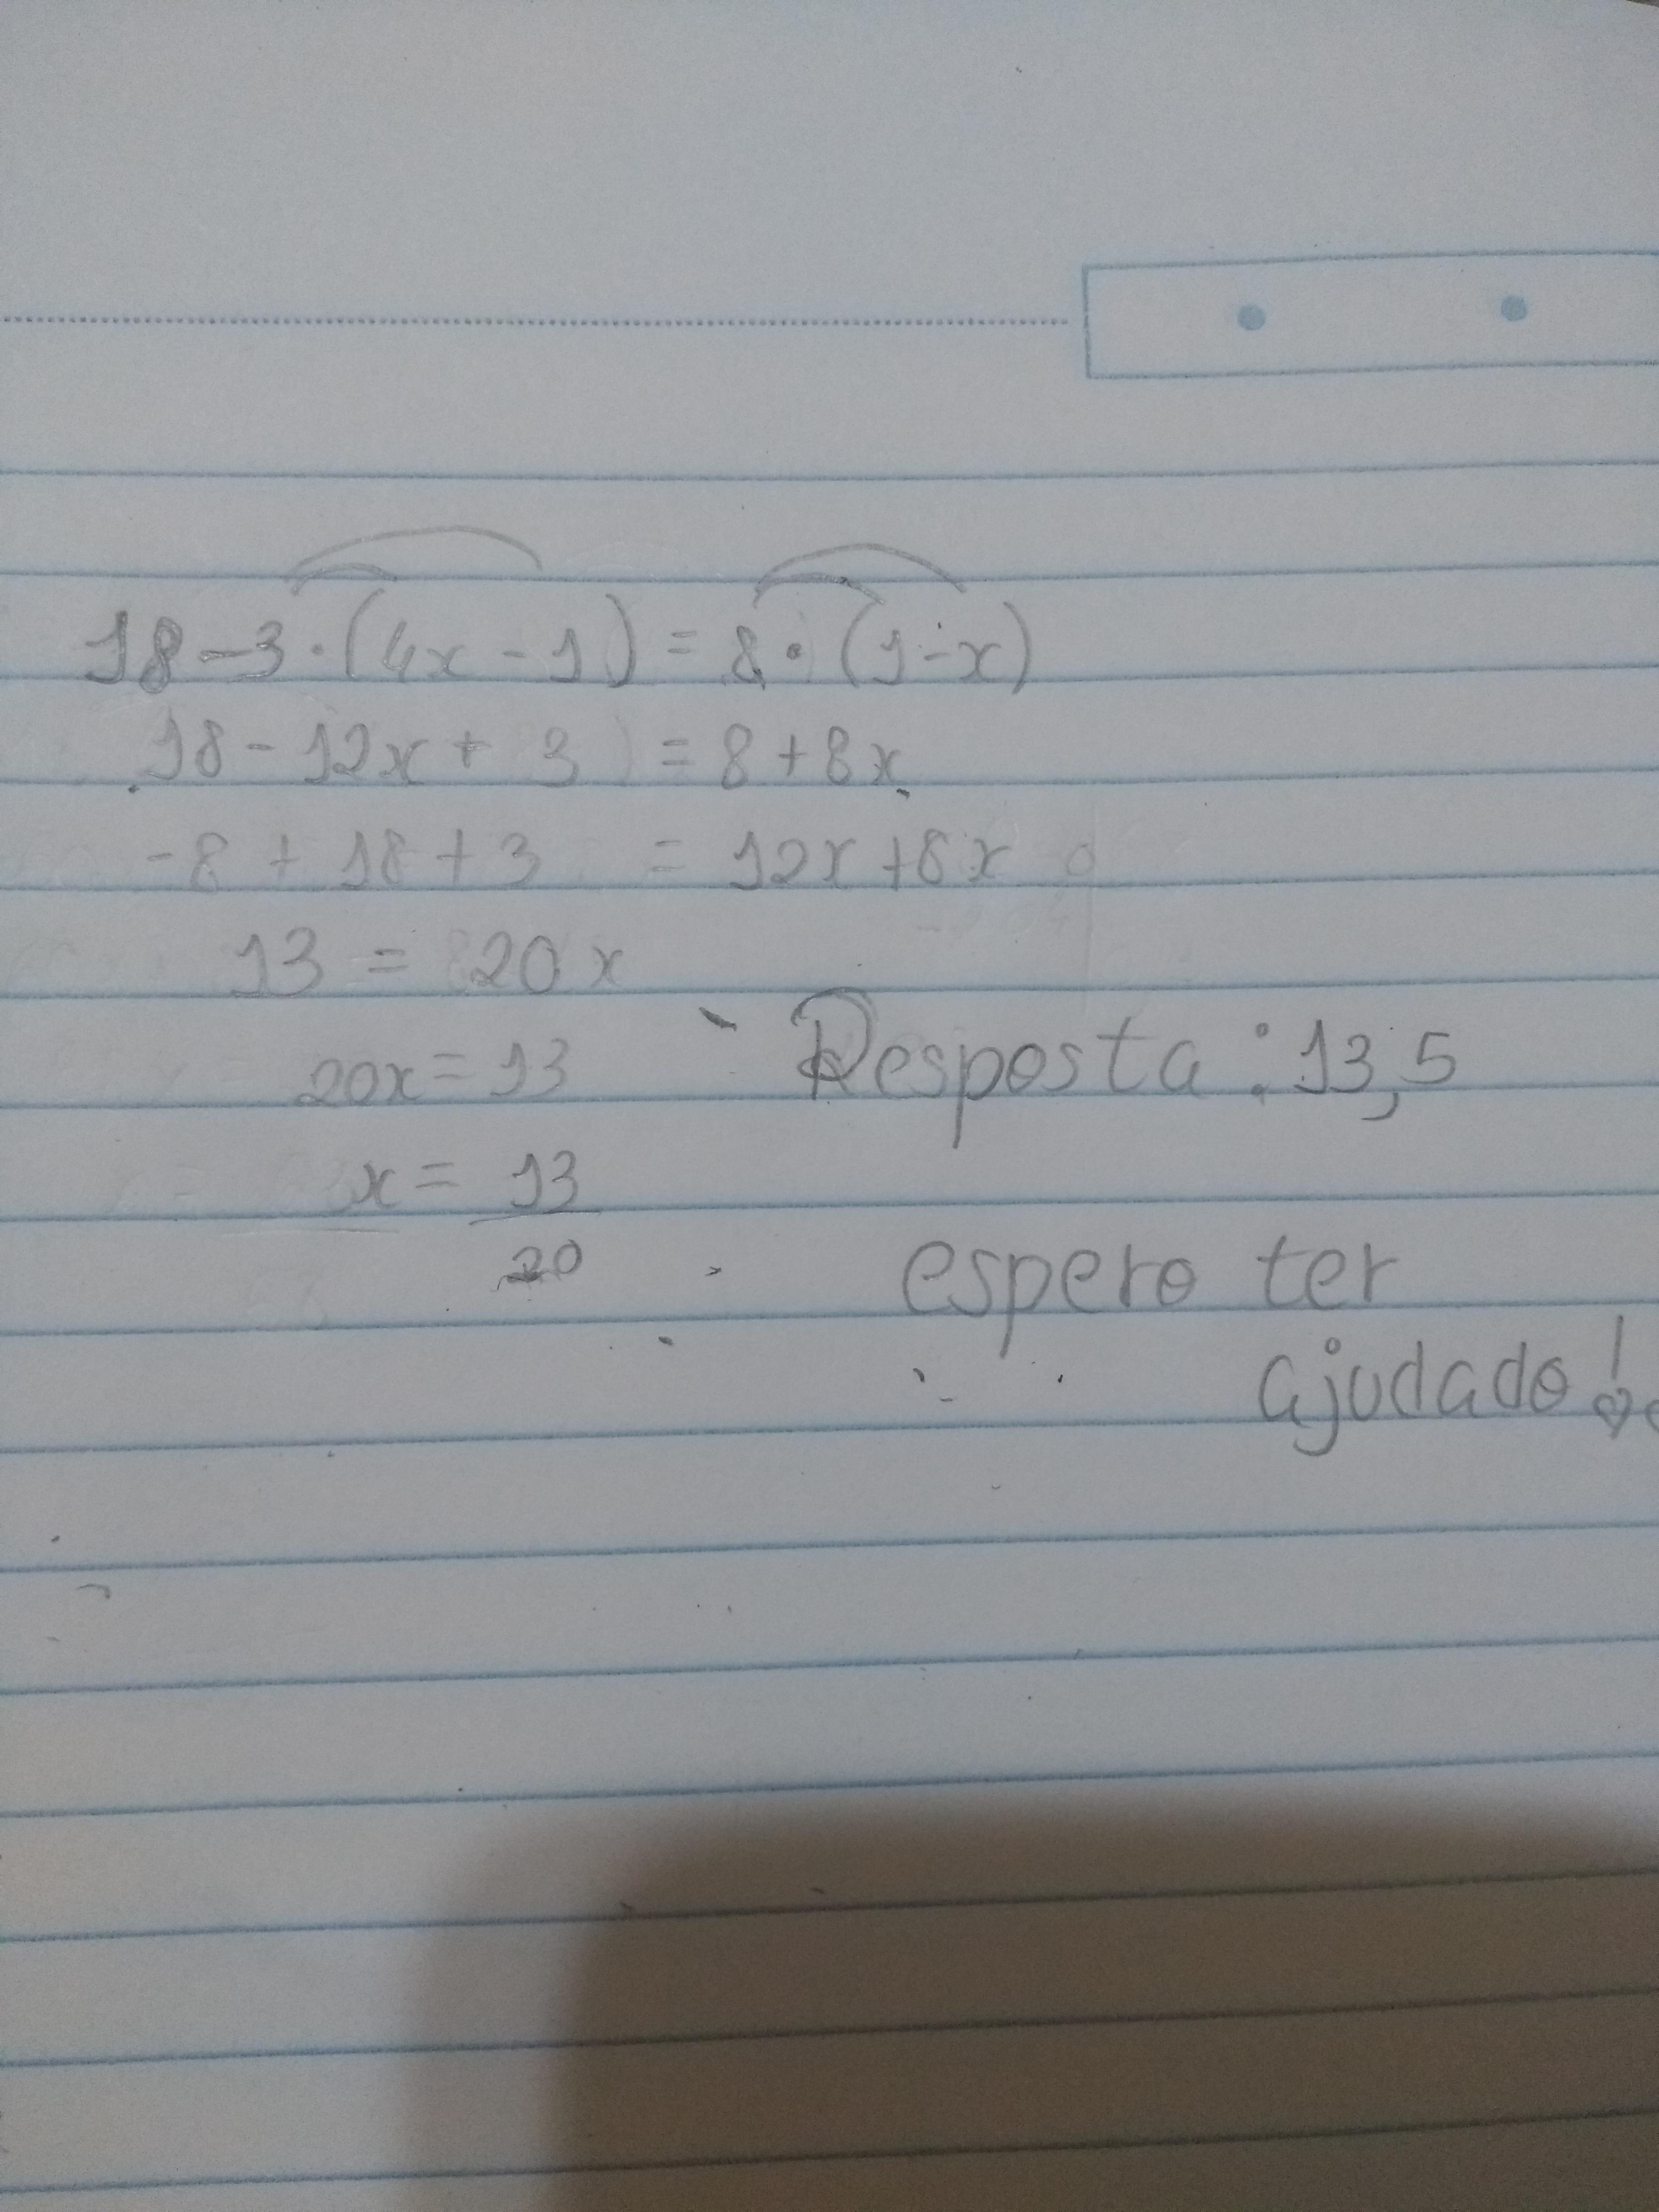 18-3·(4x-1)=8·(1-x)
18-12x+3 =8+8x
-8+18+3 =12x+8x
13=20x
20x=13
Resposta:13,5
x=13
20
espero ter
ajudado!